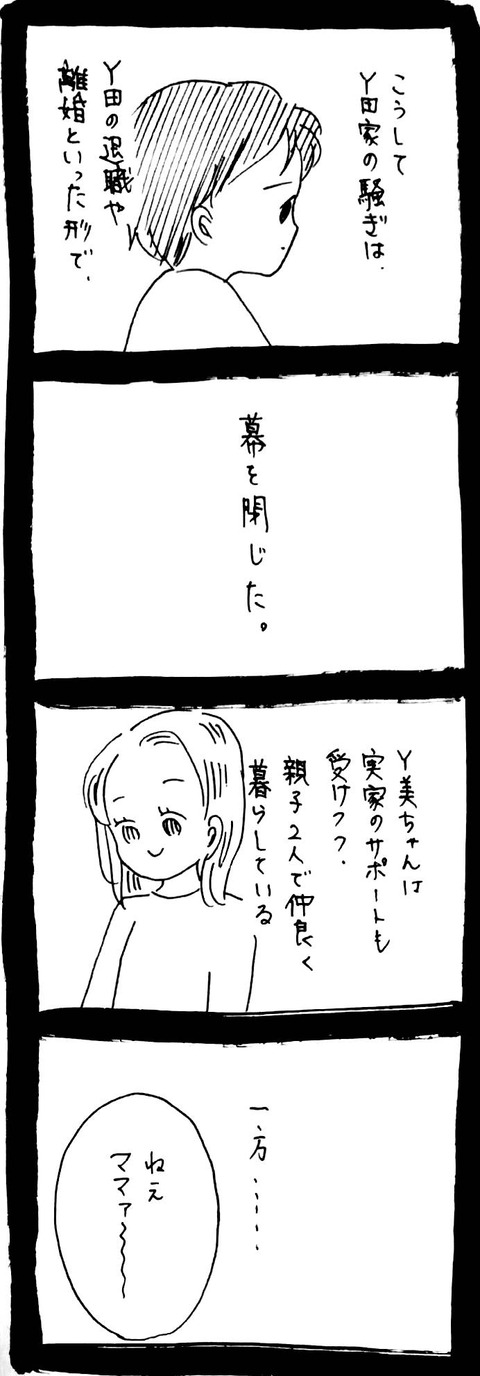 こうして
Y田家の騒ぎは、
Y田の退職や
離婚といった形で、
幕を閉じた。
Y美ちゃんは
実家のサポートも
受けつつ、
親子2人で仲良く
暮らしている
一方……
ねえ
ママァ〜〜〜